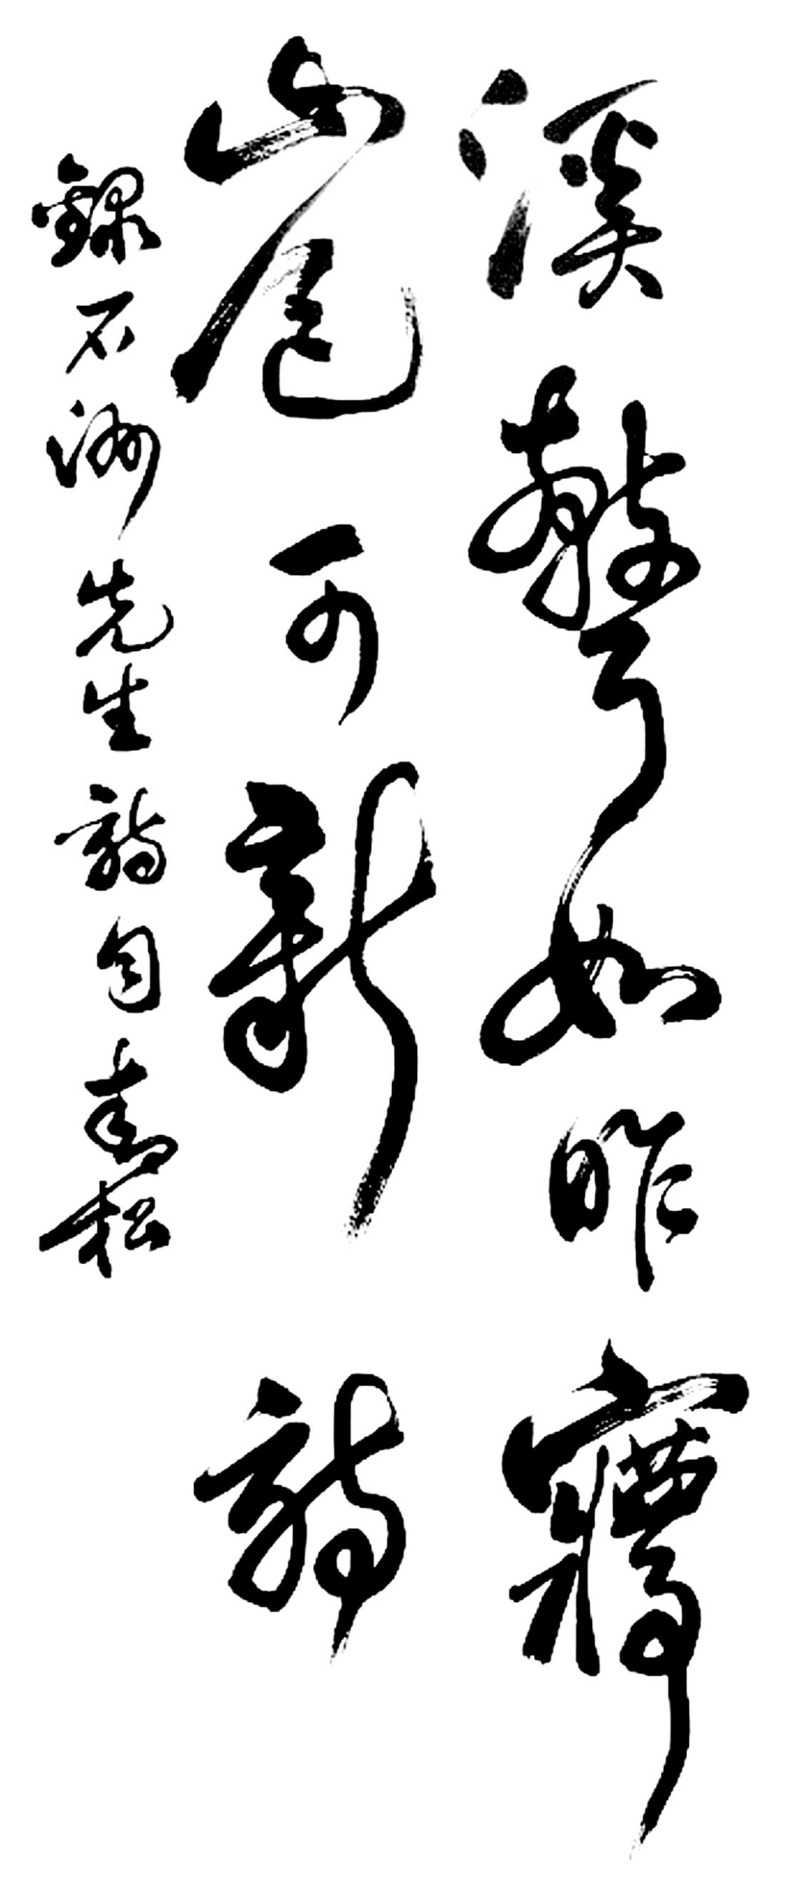 溪聲如昨㝱
山色可新詩
錄石洲先生詩句松